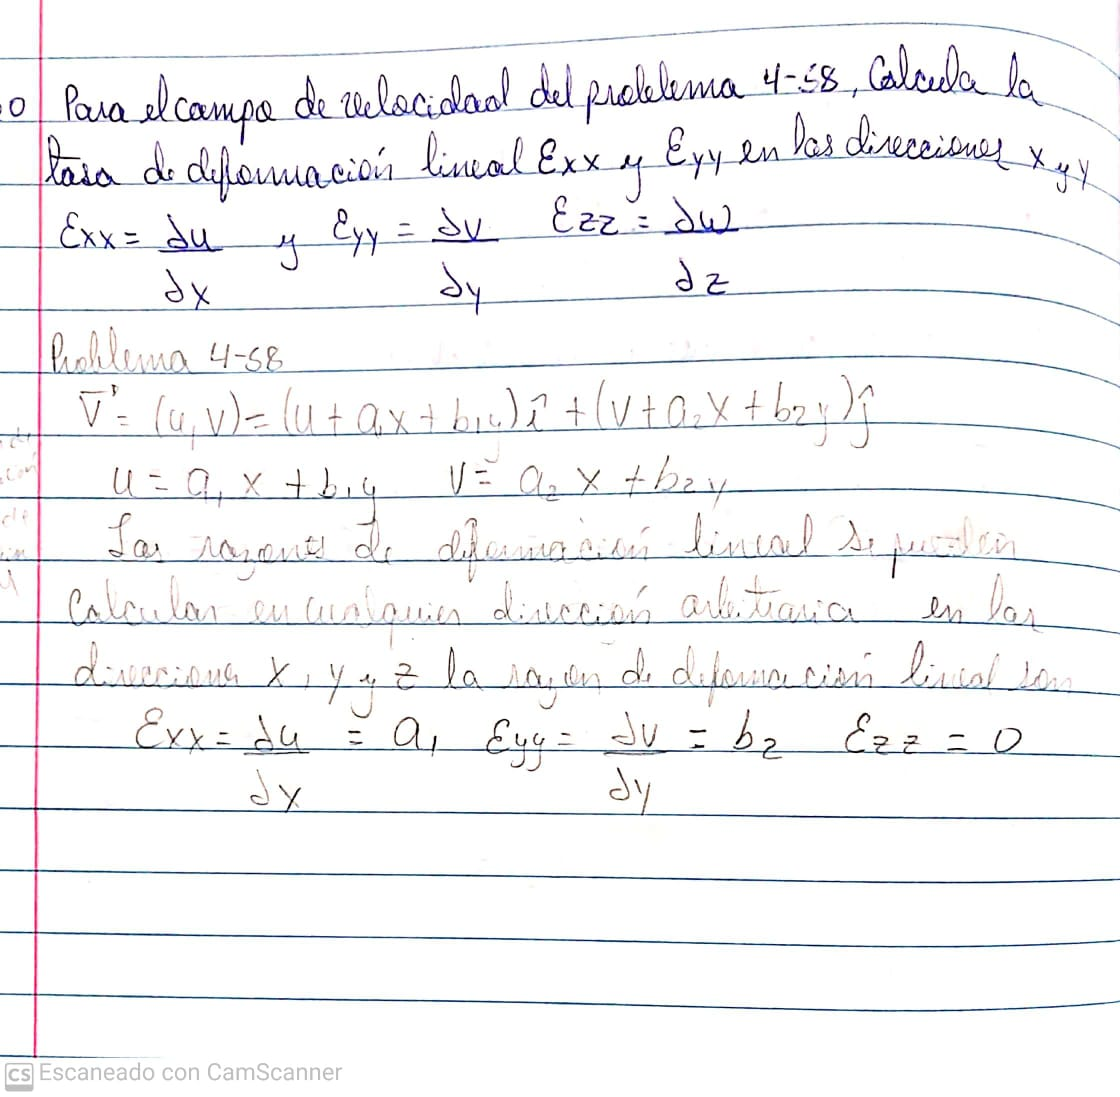 o Para el campo de velocidad del problema 4-58, Calcula la
tasa de deformación lineal Exx y Eyy en las direcciones x y y
Exx = ∂u/∂x y Eyy = ∂v/∂y Ezz = ∂w/∂z
Problema 4-58
V = (u, v) = (u + a₁x + b₁y) î + (v + a₂x + b₂y) ĵ
u = a₁x + b₁y v = a₂x + b₂y
Las razones de deformación lineal se pueden
Calcular en cualquier dirección arbitraria en las
direcciones x, y y z la razon de deformación lineal son
Exx = ∂u/∂x = a₁ Eyy = ∂v/∂y = b₂ Ezz = 0
CS Escaneado con CamScanner